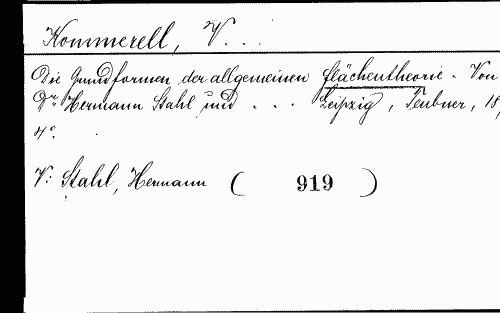 Kommerell, V. . .
Die Grundformen der allgemeinen Flächentheorie. Von
Dr Hermann Stahl und . . . Leipzig, Teubner, 18
4°.
V: Stahl, Hermann ( 919 )